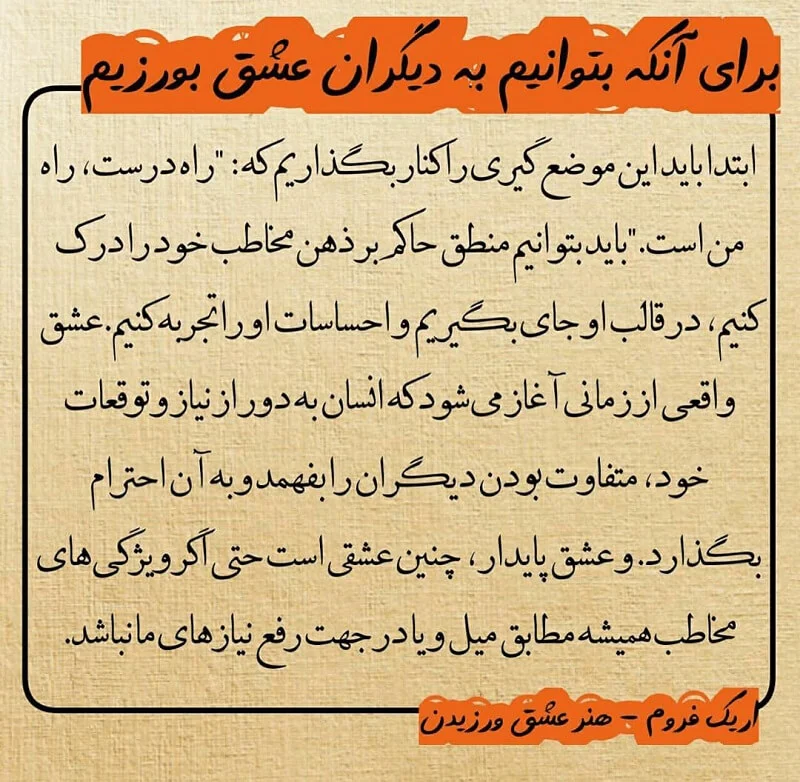 برای آنکه بتوانیم به دیگران عشق بورزیم
ابتدا باید این موضع گیری را کنار بگذاریم که: "راه درست، راه
من است." باید بتوانیم منطق حاکم بر ذهن مخاطب خود را درک
کنیم، در قالب او جای بگیریم و احساسات او را تجربه کنیم. عشق
واقعی از زمانی آغاز می شود که انسان به دور از نیاز و توقعات
خود، متفاوت بودن دیگران را بفهمد و به آن احترام
بگذارد. و عشق پایدار، چنین عشقی است حتی اگر ویژگی های
مخاطب همیشه مطابق میل و یا در جهت رفع نیازهای ما نباشد.
اریک فروم - هنر عشق ورزیدن